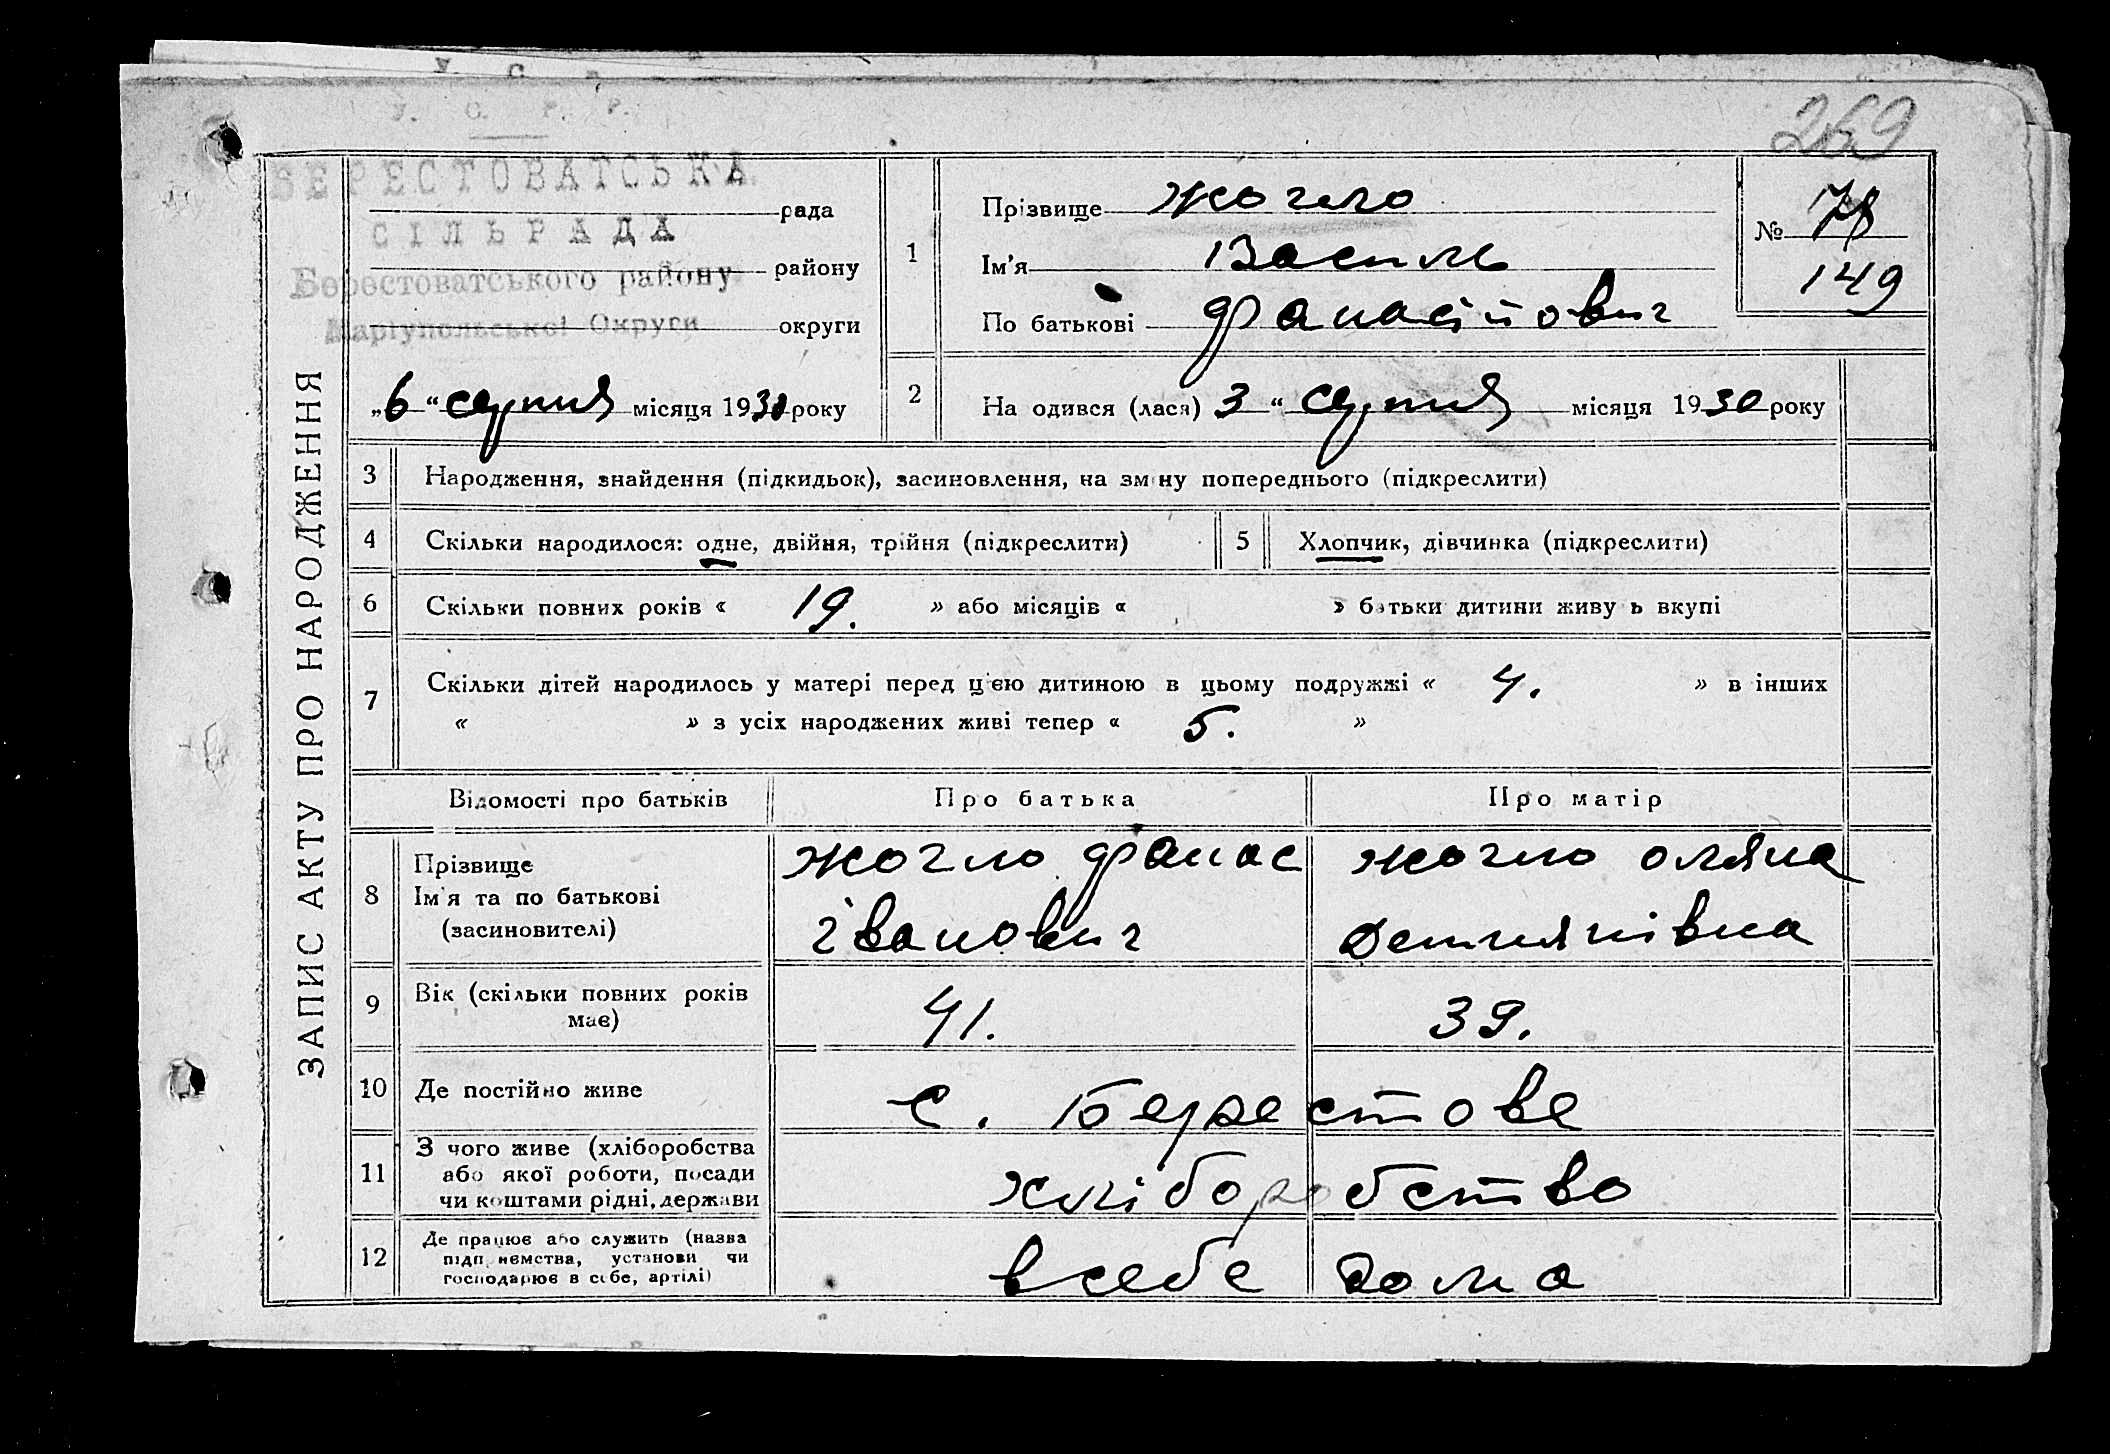 У. С. Р. Р.
269
БЕРЕСТОВАТСЬКА
рада
СІЛЬРАДА
району
Берестоватського району
округи
Маріупольської Округи
„6“ серпня місяця 1930 року
ЗАПИС АКТУ ПРО НАРОДЖЕННЯ
1 Прізвище Жогло
Ім'я Василь
По батькові Фанасійович
№ 78
149
2 На одився (лася) 3 “ серпня місяця 1930 року
3 Народження, знайдення (підкидьок), засиновлення, на зміну попереднього (підкреслити)
4 Скільки народилося: одне, двійня, трійня (підкреслити) 5 Хлопчик, дівчинка (підкреслити)
6 Скільки повних років « 19. » або місяців « » батьки дитини живу ь вкупі
7 Скільки дітей народилось у матері перед ц'єю дитиною в цьому подружжі « 4. » в інших
« » з усіх народжених живі тепер « 5. »
Відомості про батьків Про батька Про матір
8 Прізвище
Ім'я та по батькові
(засиновителі)
Жогло Фанас
Іванович
Жогло Оляна
Демянівна
9 Вік (скільки повних років
має)
41. 39.
10 Де постійно живе с. Берестове
11 З чого живе (хліборобства
або якої роботи, посади
чи коштами рідні, держави
хліборобство
12 Де працює або служить (назва
підп немства, установи чи
господарює в себе, артілі)
в себе дома